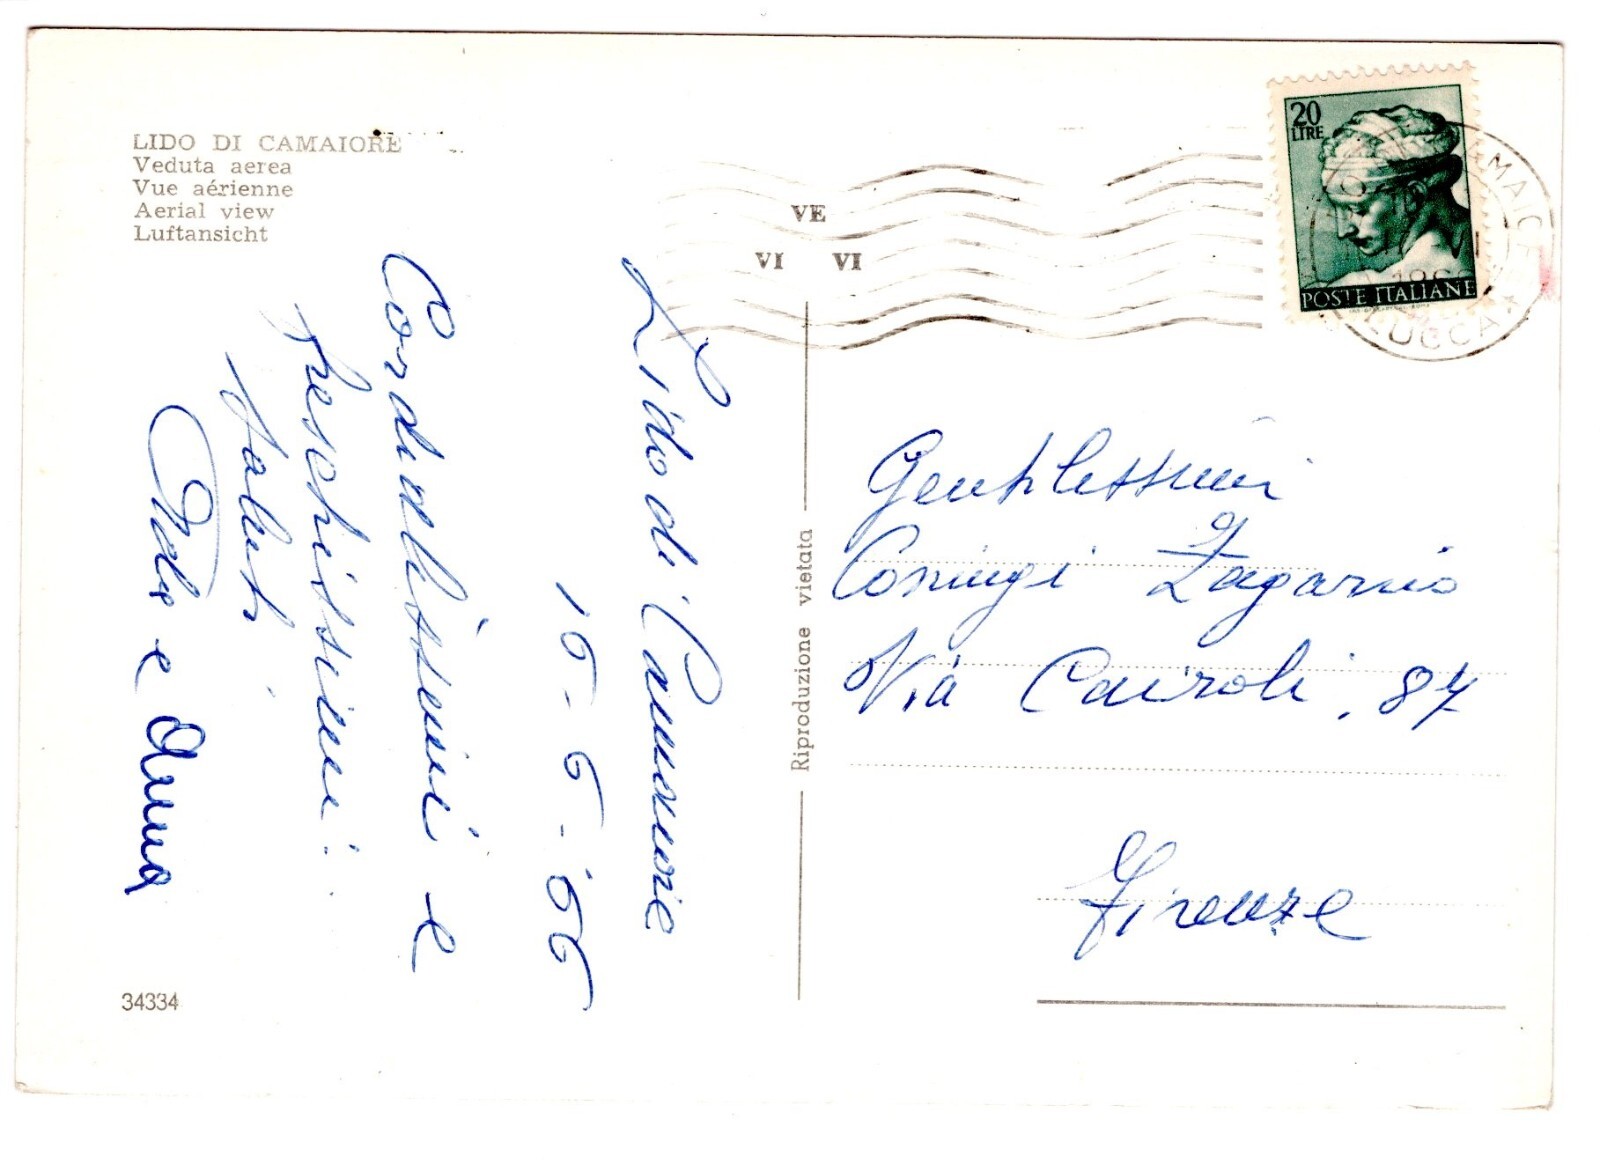 LIDO DI CAMAIORE
Veduta aerea
Vue aérienne
Aerial view
Luftansicht
VE
VI VI
20
LIRE
POSTE ITALIANE
LUCCA
Lido di Camaiore
16-6-'66
Cordialissimi e
freschissimi
saluti
e Anna
Riproduzione vietata
Gentilissimi
Coniugi
Via Cairoli, 87
Firenze
34334